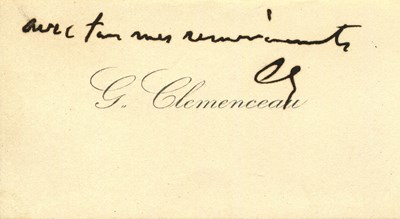 avec tous mes remerciements
G. Clemenceau